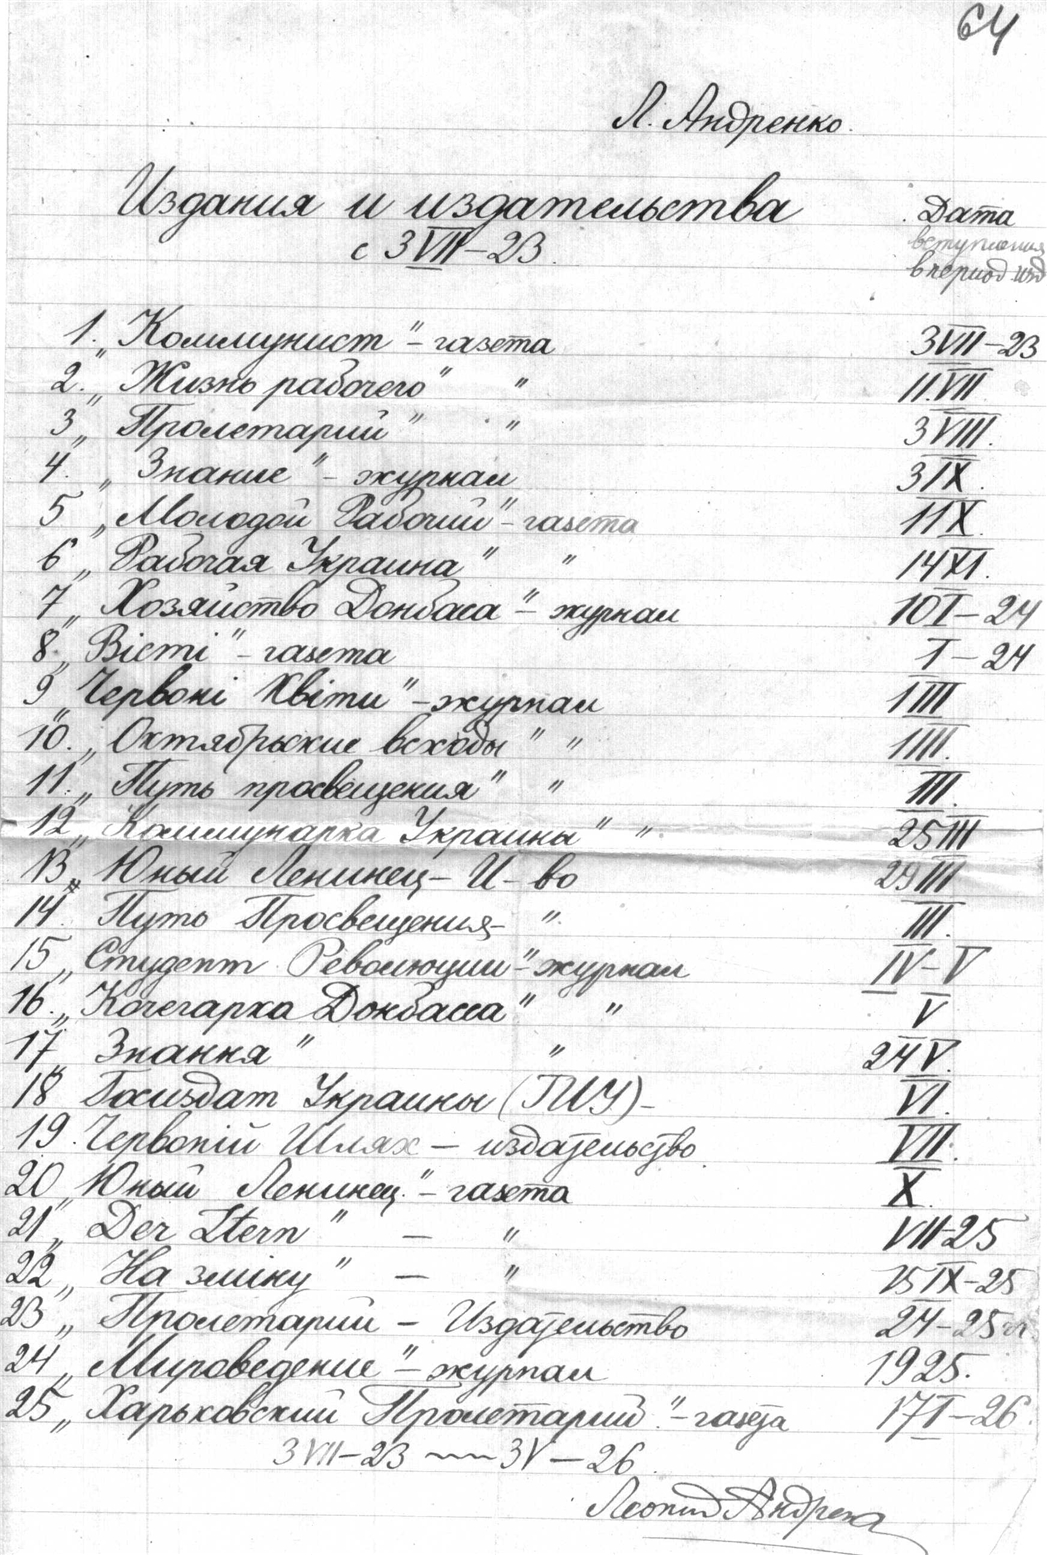 64
Л. Андренко.
Издания и издательства Дата
с 3 VII – 23. вступления
в период изд
1. „Коммунист" – газета 3 VII – 23
2. „Жизнь рабочего" " 11. VII
3 „Пролетарий" " 3 VIII.
4. „Знание" – журнал 3 IX.
5 „Молодой Рабочий" – газета 11 X.
6 „Рабочая Украина" " 14 XI.
7 „Хозяйство Донбаса" – журнал 10 I – 24
8 „Вісті" – газета I – 24
9 „Червоні Квіти" – журнал 1 III
10. „Октябрьские всходы" " 1 III.
11. „Путь просвещения" " III.
12 „Коммунарка Украины" " 25 III
13 „Юный Ленинец – И-во 29 III
14. Путь Просвещения – " III.
15 „Студент Революции" – журнал IV – V
16. „Кочегарка Донбасса" " V
17 „Знання" " 24 V.
18 Госиздат Украины (ГИУ) – VI.
19. Червоній Шлях – издательство VII.
20 „Юный Ленинец" – газета X.
21 „Der Stern" – " VII – 25
22 „На зміну" – " 15 IX – 25
23 „Пролетарий – Издательство 24 – 25 гг
24 „Мироведение" – журнал 1925.
25 „Харьковский Пролетарий" – газета 17 I – 26.
3 VII – 23 — 3 V – 26.
Леонид Андренко